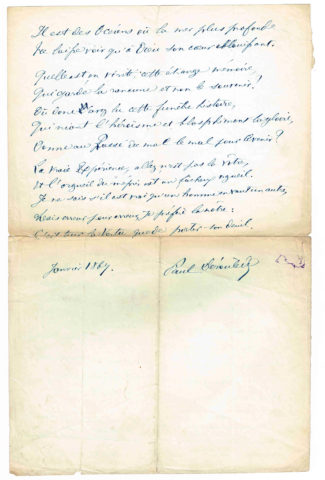 Il est des Océans où la mer plus profonde
Ne laisse voir qu'à Dieu son cœur
Quelle est en vérité cette étrange mémoire,
Qui garde la rancune et non le souvenir?
Où donc lu cette funèbre histoire,
Qui niant l'héroïsme et blasphémant la gloire,
Donne au Passé de mal le mal pour devenir?
La vraie Expérience, allez, n'est pas la vôtre,
Et l'orgueil du mépris est un fâcheux orgueil.
Je ne sais s'il est vrai qu'un homme en vaut un autre,
Mais erreur pour erreur, je préfère la nôtre:
C'est la Vertu que de porter son deuil.
Janvier 1869.
Paul Déroulède